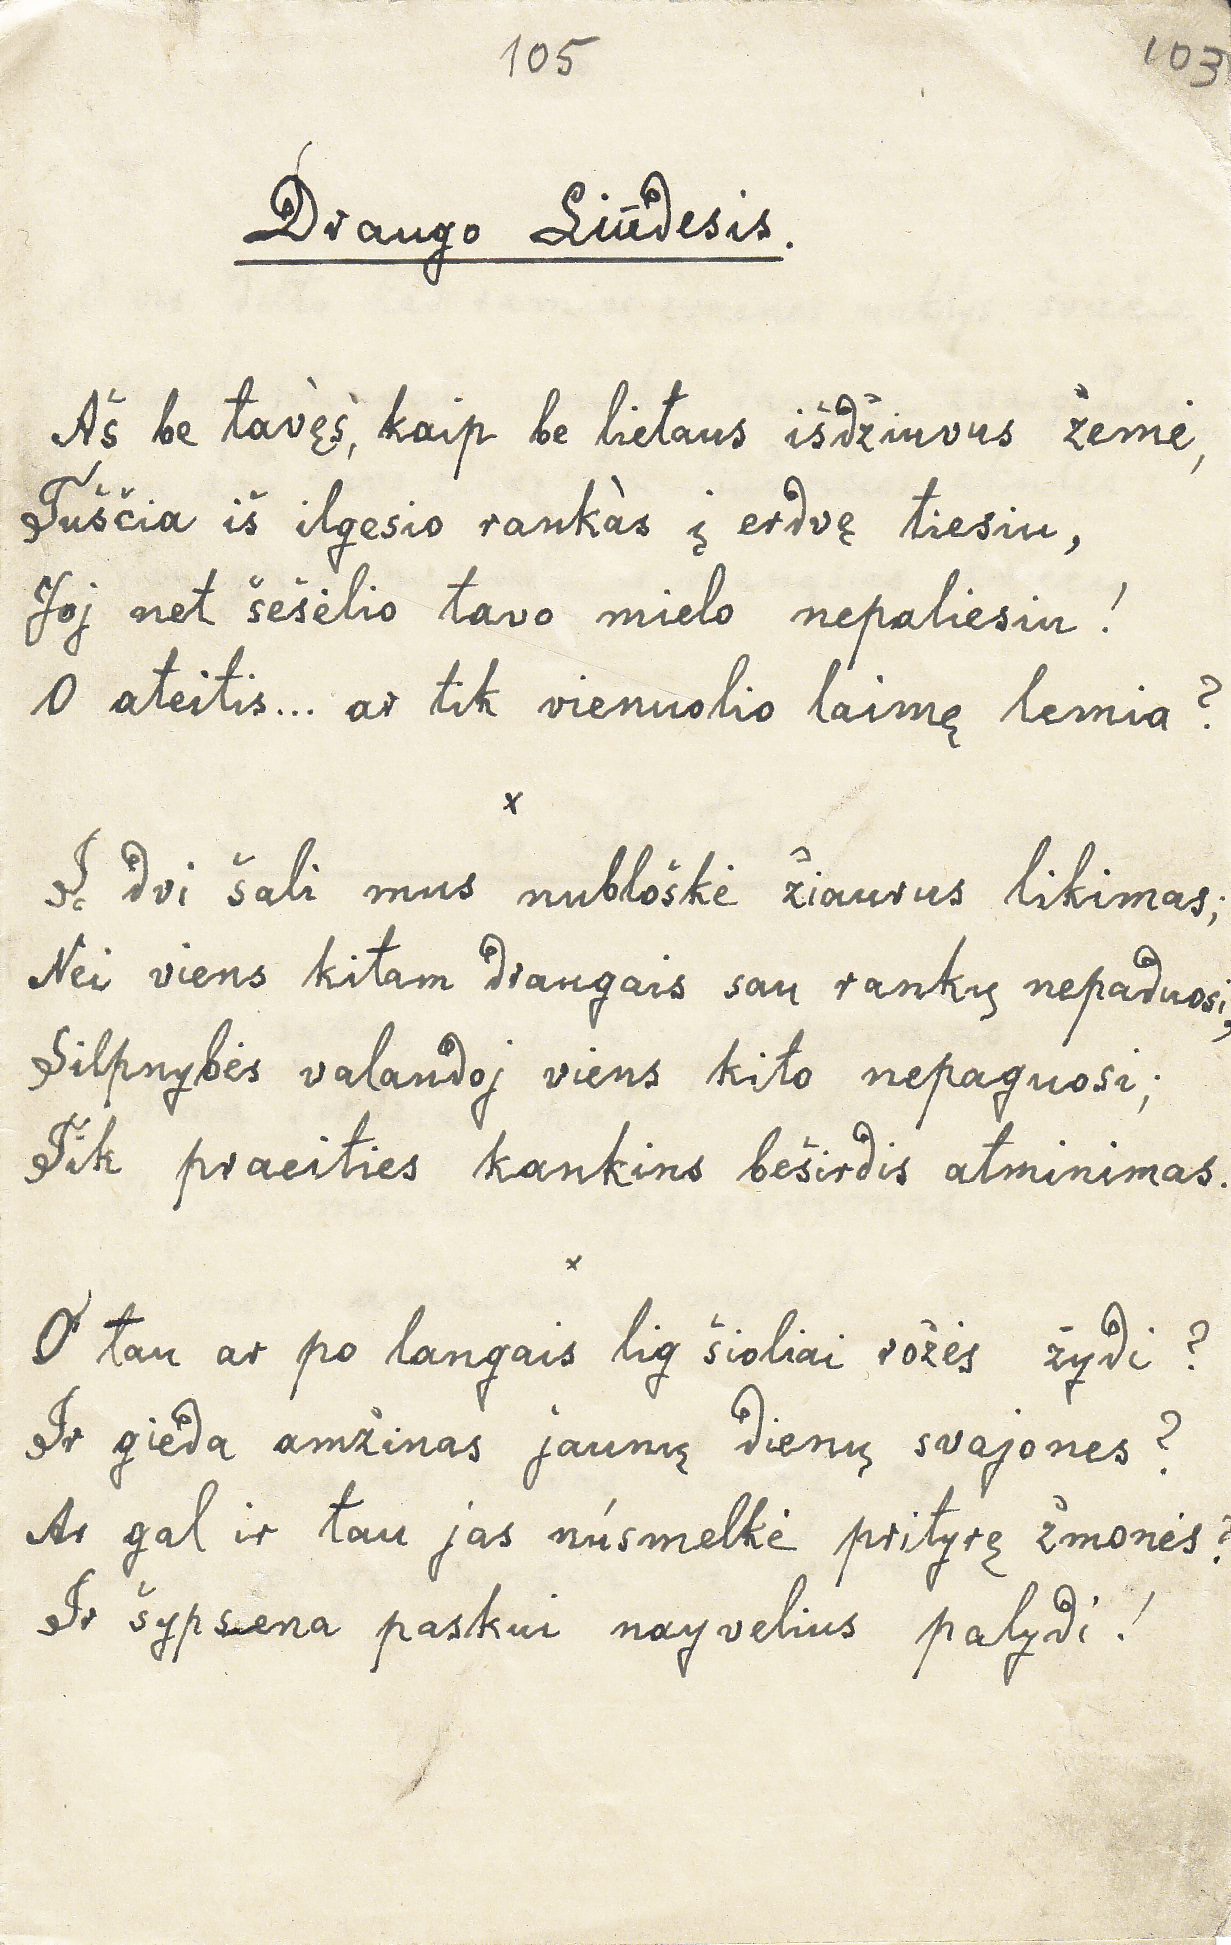 105
103
Draugo Liūdesis.
Aš be tavęs, kaip be lietaus išdžiuvus žemė,
Tuščia iš ilgesio rankàs į erdvę tiesiu,
Joj net šešėlio tavo mielo nepaliesiu!
O ateitis... ar tik vienuolio laimę lemia?
x
Į dvi šali mus nubloškė žiaurus likimas;
Nei viens kitam draugais sau rankų nepaduosi,
Silpnybės valandoj viens kito nepaguosi;
Tik praeities kankins beširdis atminimas.
x
O tau ar po langais lig šioliai rožės žydi?
Ir gieda amžinas jaunų dienų svajones?
Ar gal ir tau jas nusmelkė prityrę žmonės?
Ir šypsena paskui nayvelius palydi!